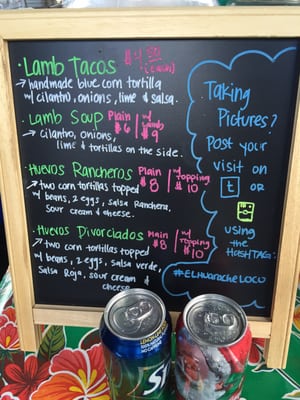 ·Lamb Tacos $4.50
(each)
→ handmade blue corn tortilla
w/ cilantro, onions, lime & salsa.
·Lamb Soup Plain $6 | w/ Lamb $9
→ cilantro, onions,
lime & tortillas on the side.
Huevos Rancheros Plain $8 | w/ topping $10
→ two corn tortillas topped
w/ beans, 2 eggs, salsa Ranchera,
sour cream & cheese.
·Huevos Divorciados Plain $8 | w/ topping $10
→ two corn tortillas topped
w/ beans, 2 eggs, salsa verde,
Salsa Roja, sour cream &
cheese
Taking
Pictures?
Post your
visit on
t or
using
the
HASHTAG:
#ELHUARACHELOCO